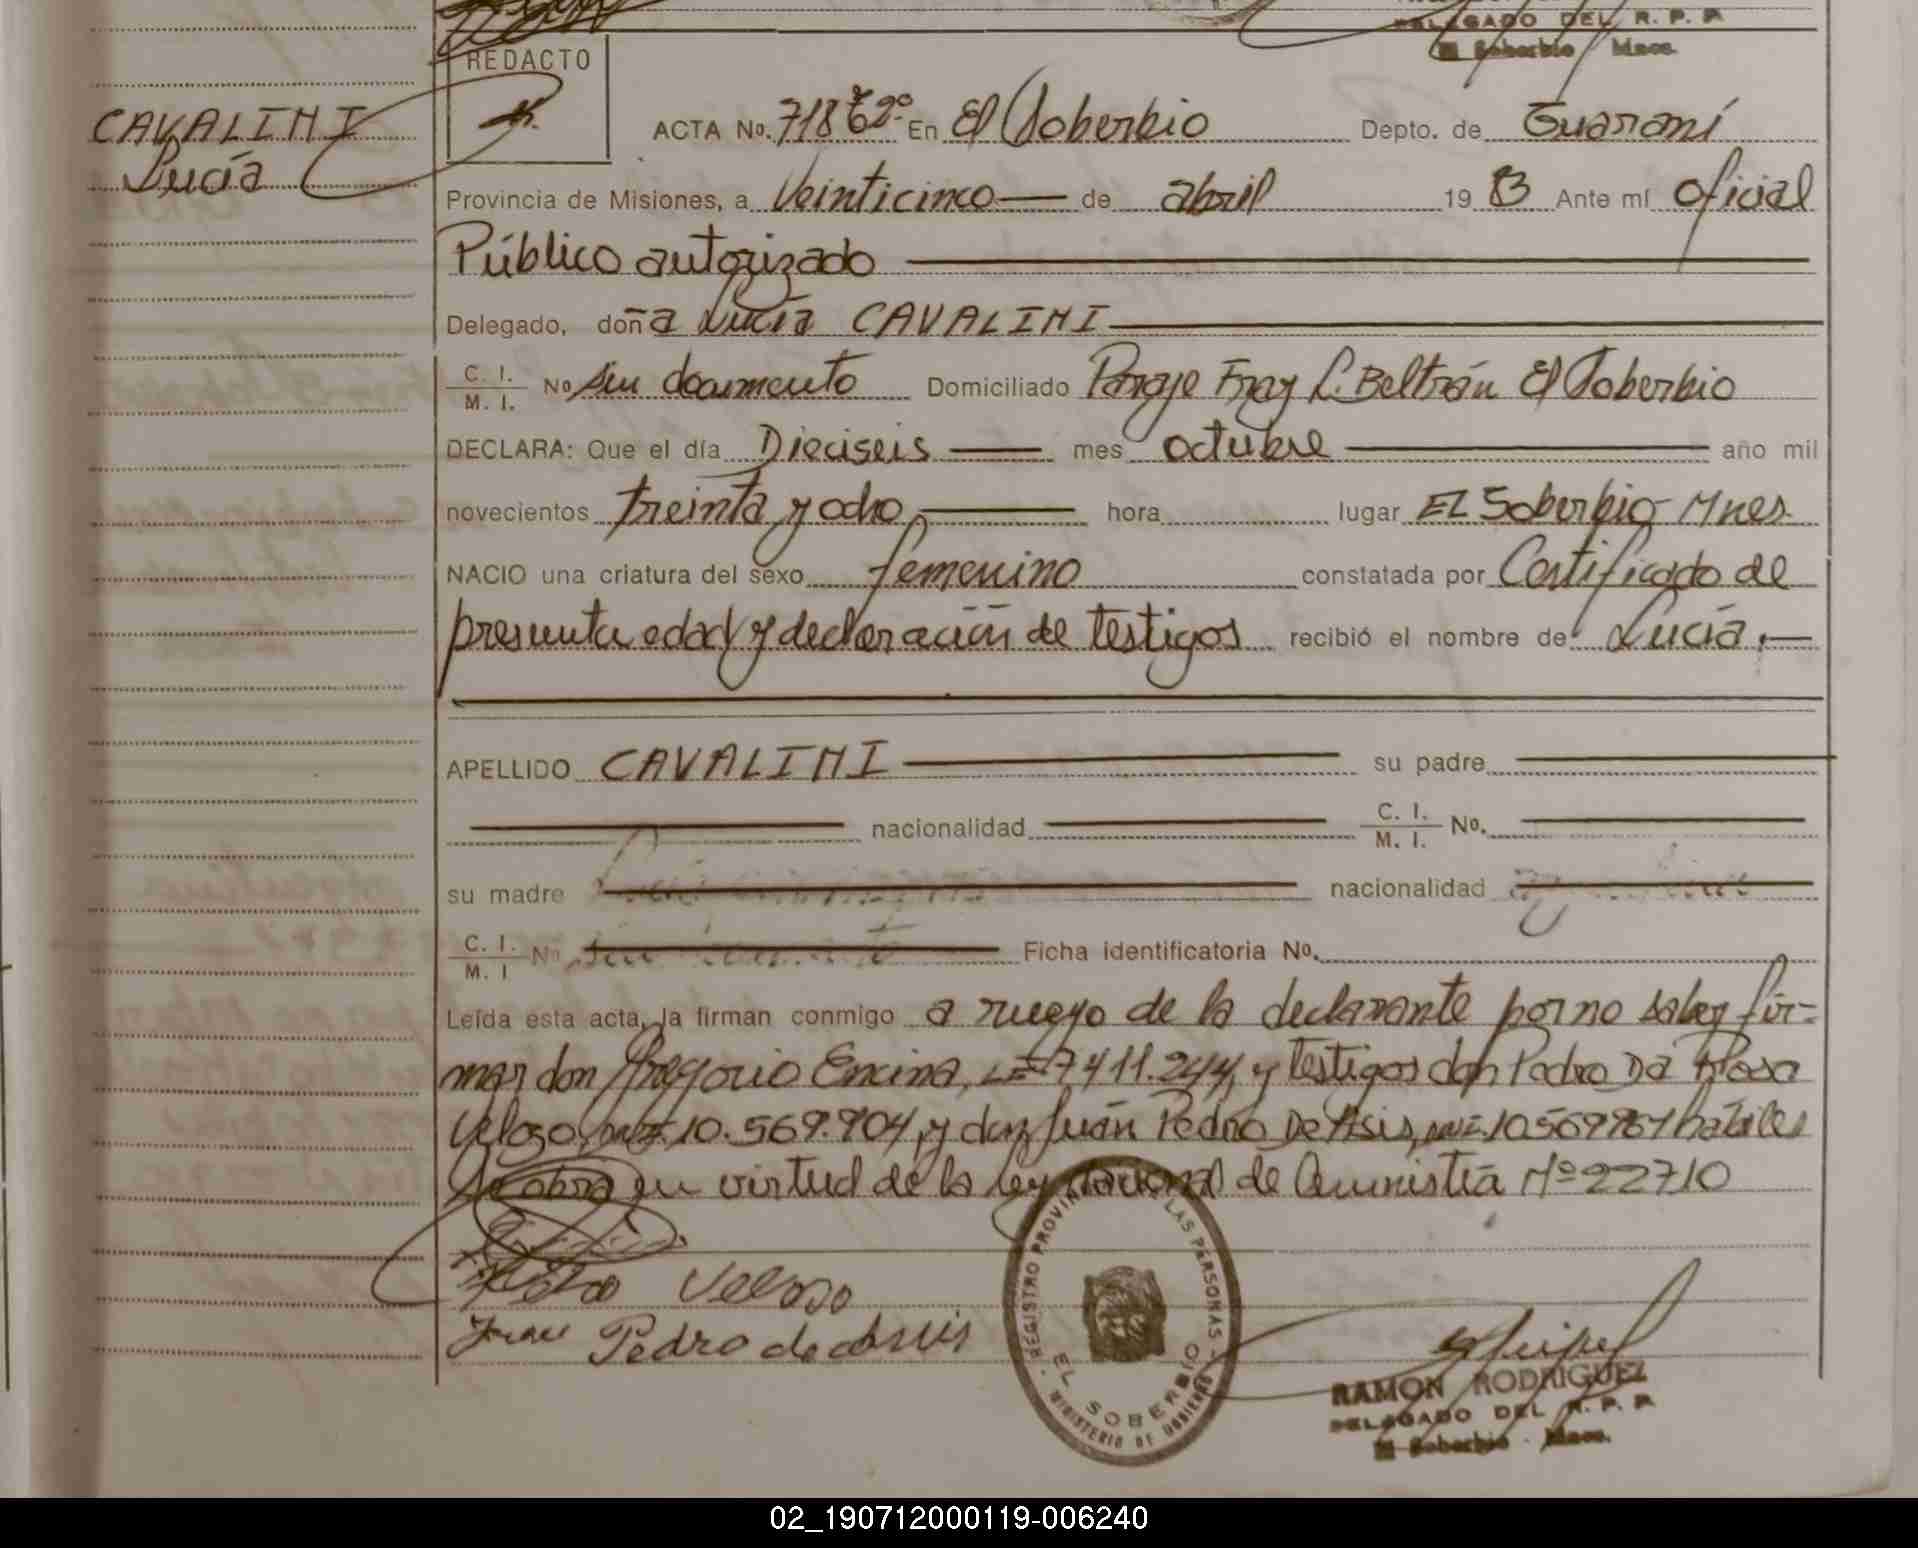 DELEGADO DEL R. P. P.
El Soberbio Mnes.
REDACTO
CAVALINI
Lucía
ACTA No. 718 Tº 2º En El Soberbio Depto. de Guaraní
Provincia de Misiones, a Veinticinco de abril 19 83 Ante mí oficial
Público autorizado
Delegado, doña Lucía CAVALINI
C. I.
M. I. No sin documento Domiciliado Paraje Fray L. Beltrán El Soberbio
DECLARA: Que el día Dieciseis mes octubre año mil
novecientos treinta y ocho hora lugar EL Soberbio Mnes.
NACIO una criatura del sexo femenino constatada por Certificado de
presunta edad y declaración de testigos recibió el nombre de Lucía.
APELLIDO CAVALINI su padre
nacionalidad C. I.
M. I. No.
su madre nacionalidad
C. I.
M. I No Ficha identificatoria No.
Leída esta acta, la firman conmigo a ruego de la declarante por no saber fir-
mar don Gregorio Encina, LE 7411.244, y testigos don Pedro Da Rosa
Velozo, 10.569.904, y don Juán Pedro De Asis, hábiles
en virtud de la ley nacional de Amnistía Nº 22710
Pedro Velozo
Juan Pedro de Assis
REGISTRO PROVINCIAL DE LAS PERSONAS
EL SOBERBIO
MINISTERIO DE GOBIERNO
RAMON RODRIGUEZ
DELEGADO DEL R. P. P.
El Soberbio - Mnes.
02_190712000119-006240